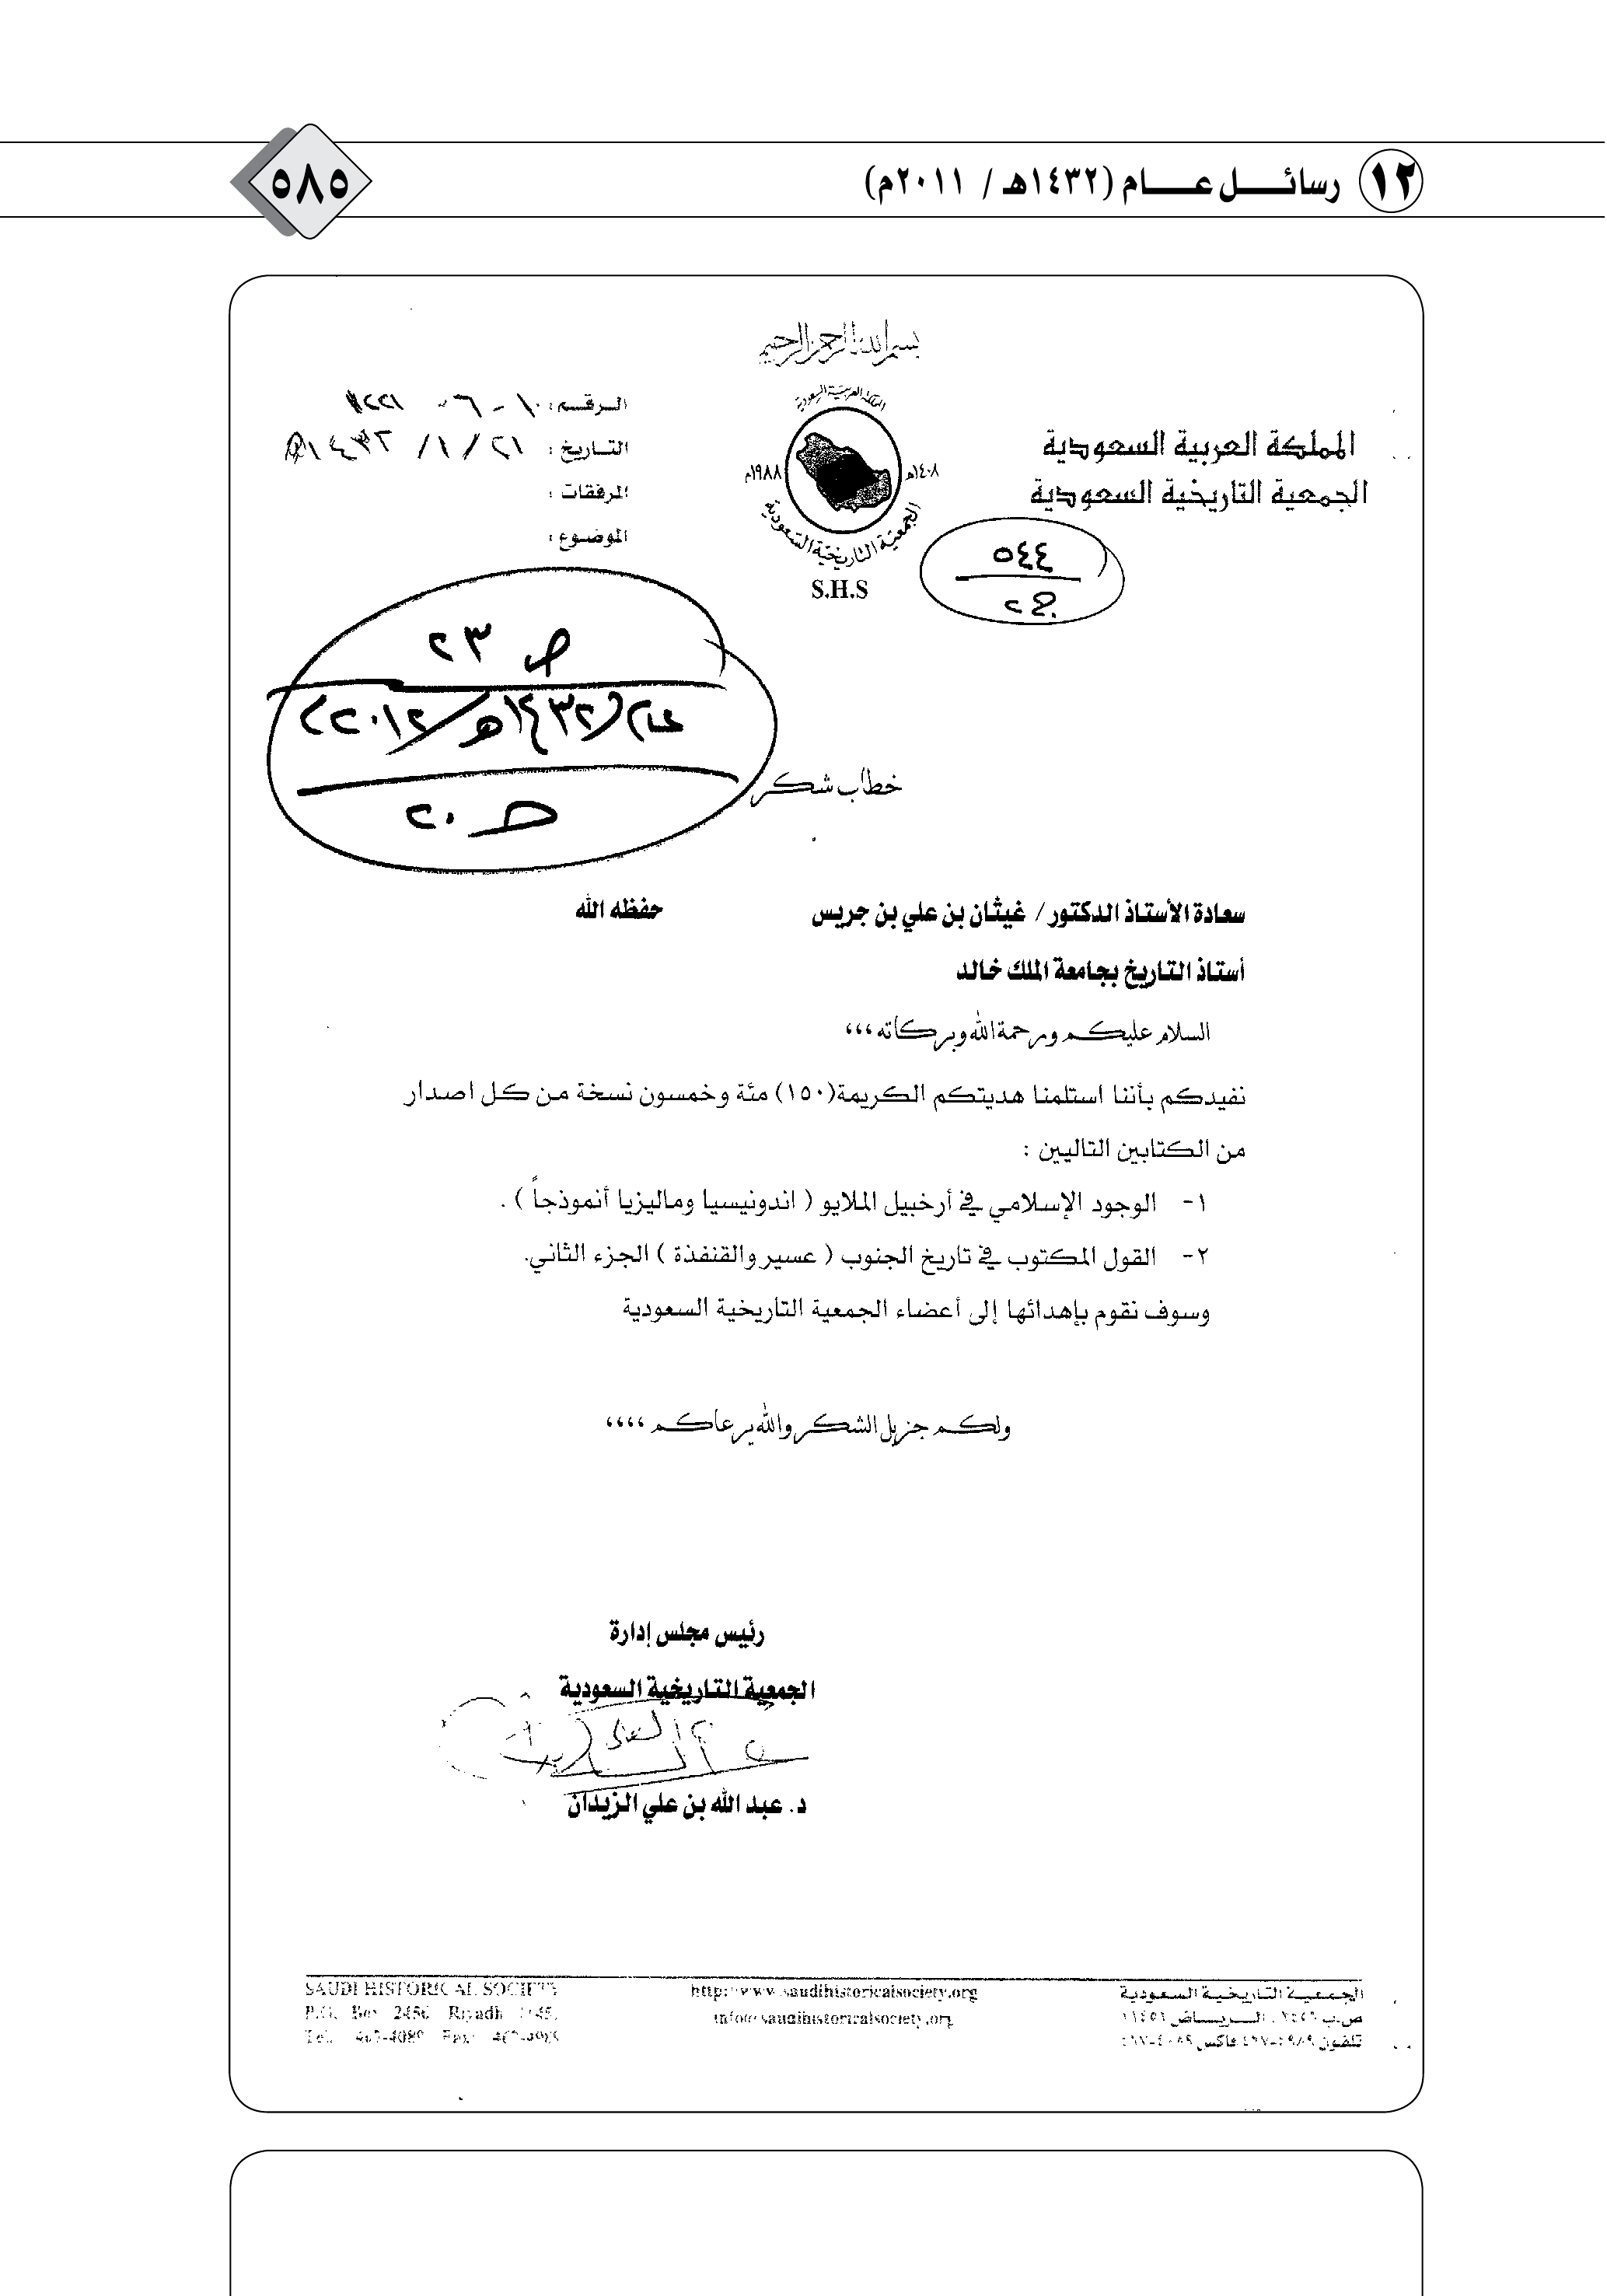 ١٢ رسائل عام (١٤٣٢هـ / ٢٠١١م)
٥٨٥
بسم الله الرحمن الرحيم
المملكة العربية السعودية
الجمعية التاريخية السعودية
المملكة العربية السعودية
١٤٠٨هـ
١٩٨٨م
الجمعية التاريخية السعودية
S.H.S
الرقم :
التاريخ : ٢١ / ١ / ١٤٣٢هـ
المرفقات :
الموضوع :
٥٤٤
ج٢
ص ٢٣
(١٤٣٢هـ/٢٠١٢م)
ج ٢٠
خطاب شكر
سعادة الأستاذ الدكتور / غيثان بن علي بن جريس حفظه الله
أستاذ التاريخ بجامعة الملك خالد
السلام عليكم ورحمة الله وبركاته ،،،
نفيدكم بأننا استلمنا هديتكم الكريمة(١٥٠) مئة وخمسون نسخة من كل اصدار
من الكتابين التاليين :
١- الوجود الإسلامي في أرخبيل الملايو ( اندونيسيا وماليزيا أنموذجاً ) .
٢- القول المكتوب في تاريخ الجنوب ( عسير والقنفذة ) الجزء الثاني.
وسوف نقوم بإهدائها إلى أعضاء الجمعية التاريخية السعودية
ولكم جزيل الشكر والله يرعاكم ،،،،
رئيس مجلس إدارة
الجمعية التاريخية السعودية
د. عبد الله بن علي الزيدان
الجمعية التاريخية السعودية
ص.ب ٢٤٥٦ . الرياض ١١٤٥١
تلفون فاكس
http://www.saudihistoricalsociety.org
info@saudihistoricalsociety.org
SAUDI HISTORICAL SOCIETY
P.O. Box 2456 Riyadh 11451
Tel. Fax: